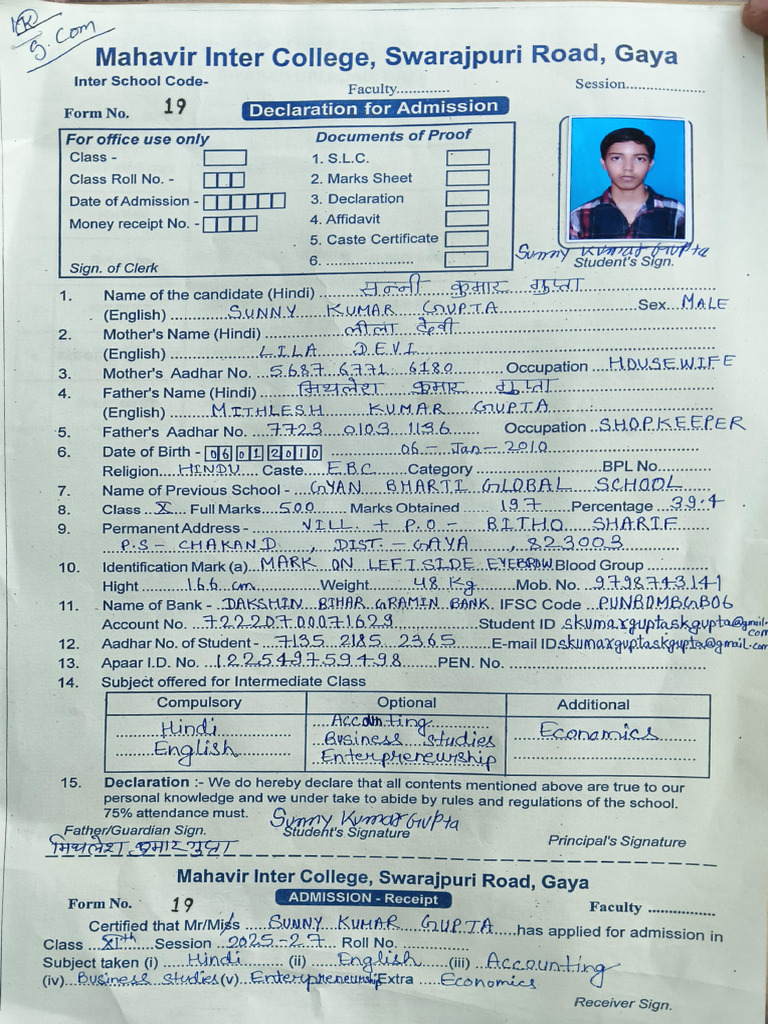 I.Com
Mahavir Inter College, Swarajpuri Road, Gaya
Inter School Code-
Faculty.............
Session....................
Form No. 19
Declaration for Admission
For office use only
Class -
Class Roll No. -
Date of Admission -
Money receipt No. -
Sign. of Clerk
Documents of Proof
1. S.L.C.
2. Marks Sheet
3. Declaration
4. Affidavit
5. Caste Certificate
6. ......................
Sunny Kumar Gupta
Student's Sign.
1. Name of the candidate (Hindi) सन्नी कुमार गुप्ता
(English) SUNNY KUMAR GUPTA Sex MALE
2. Mother's Name (Hindi) लीला देवी
(English) LILA DEVI
3. Mother's Aadhar No. 5687 6771 6180 Occupation HOUSEWIFE
4. Father's Name (Hindi) मिथलेश कुमार गुप्ता
(English) MITHLESH KUMAR GUPTA
5. Father's Aadhar No. 7723 0103 1136 Occupation SHOPKEEPER
6. Date of Birth - 06012010 06 - Jan - 2010
Religion HINDU Caste EBC Category .................... BPL No..........
7. Name of Previous School - GYAN BHARTI GLOBAL SCHOOL
8. Class X Full Marks 500 Marks Obtained 197 Percentage 39.4
9. Permanent Address - VILL + P.O - BITHO SHARIF
P.S - CHAKAND, DIST. - GAYA, 823003
10. Identification Mark (a) MARK ON LEFT SIDE EYEBROW Blood Group ............
Hight 166 cm Weight 48 Kg Mob. No. 9798743141
11. Name of Bank - DAKSHIN BIHAR GRAMIN BANK IFSC Code PUNB0MBGB06
Account No. 72220700071629 Student ID skumarguptaskgupta@gmail.com
12. Aadhar No. of Student - 7135 2185 2365 E-mail ID skumarguptaskgupta@gmail.com
13. Apaar I.D. No. 122549759498 PEN. No. ....................
14. Subject offered for Intermediate Class
Compulsory Optional Additional
Hindi Accounting Economics
English Business studies
Enterpreneurship
15. Declaration :- We do hereby declare that all contents mentioned above are true to our
personal knowledge and we under take to abide by rules and regulations of the school.
75% attendance must.
Sunny Kumar Gupta
Father/Guardian Sign. Student's Signature Principal's Signature
मिथलेश कुमार गुप्ता
Mahavir Inter College, Swarajpuri Road, Gaya
Form No. 19 ADMISSION - Receipt Faculty ................
Certified that Mr/Miss SUNNY KUMAR GUPTA has applied for admission in
Class XIth Session 2025-27 Roll No. ....................
Subject taken (i) Hindi (ii) English (iii) Accounting
(iv) Business studies (v) Enterpreneurship Extra Economics
Receiver Sign.